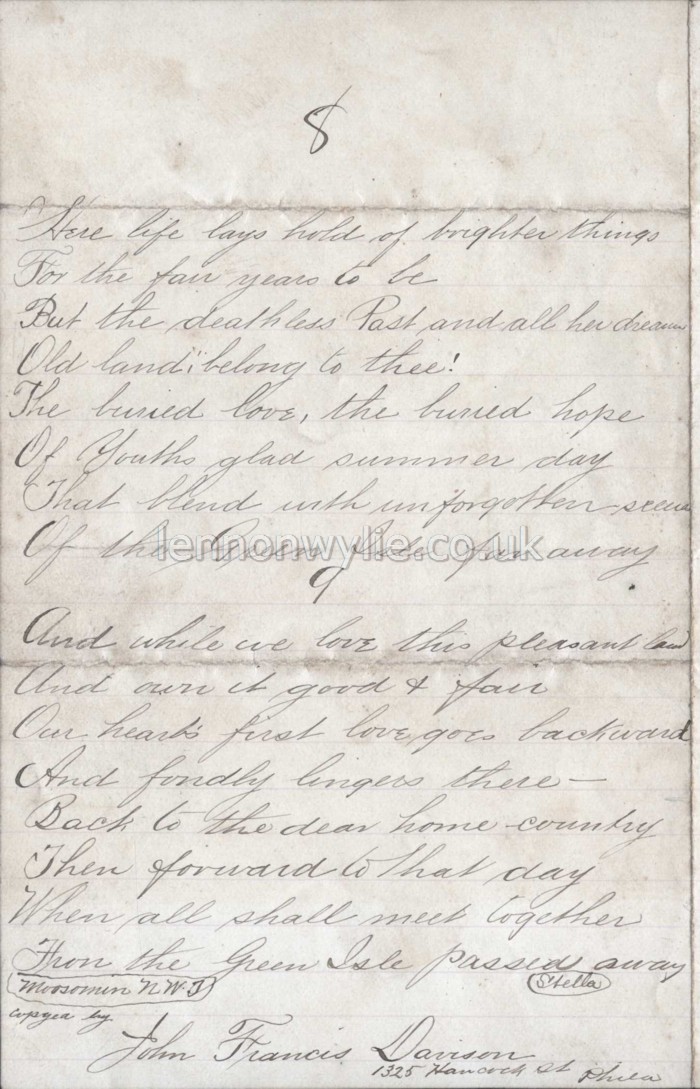 8
Here life lays hold of brighter things
For the fair years to be
But the deathless Past and all her dreams
Old land! belong to thee!
The buried love, the buried hope
Of Youths glad summer day
That blend with unforgotten scenes
Of the Green Isle far away
lennonwylie.co.uk
9
And while we love this pleasant land
And own it good & fair
Our heart's first love goes backward
And fondly lingers there —
Back to the dear home-country
Then forward to that day
When all shall meet together
From the Green Isle passed away
Moosomin N.W.T
Stella
copyed by
John Francis Davison
1325 Hancock St Phila